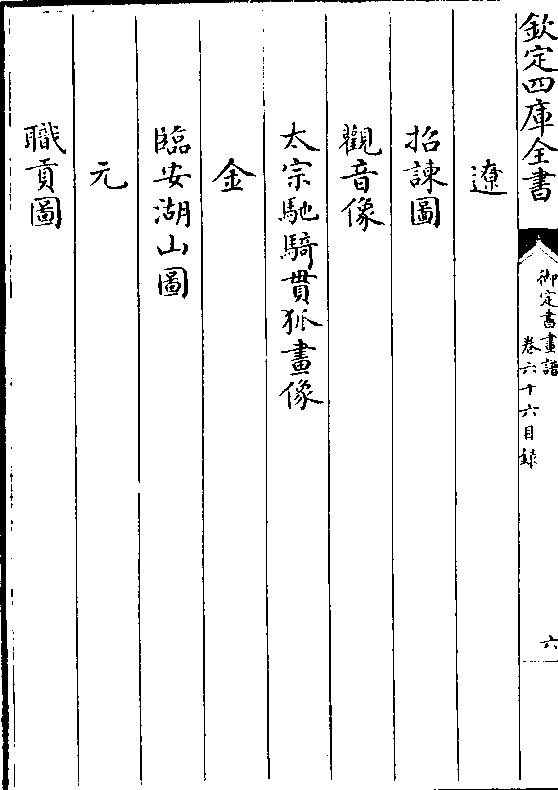 欽定四庫全書
御定書畫譜
卷六十六目錄
六
遼
招諫圖
觀音像
太宗馳騎貫狐畫像
金
臨安湖山圖
元
職貢圖